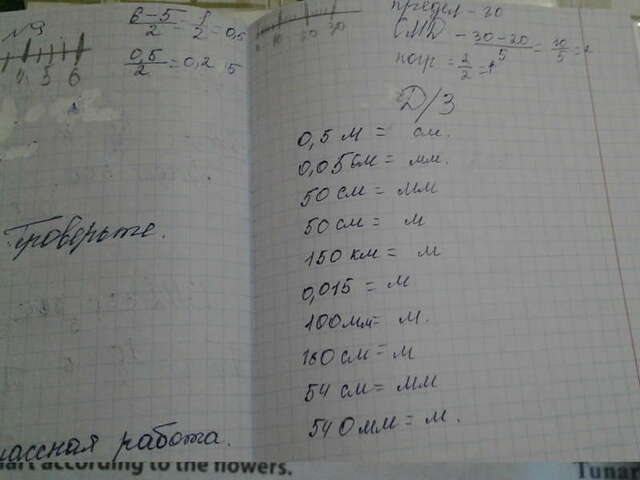 №3
6-5/2 = 1/2 = 0,5
0,5/2 = 0,25
4 5 6
Проверьте.
лассная работа.
0 10 20 30
предел - 30
30-20/5 = 10/5 =
погр = 2/2 = 1
Д/З
0,5 м = см.
0,05 см = мм.
50 см = мм
50 см = м
150 км = м
0,015 = м
100 мм = м.
160 см = м
54 см = мм
540 мм = м.
art according to the flowers.
Tunar